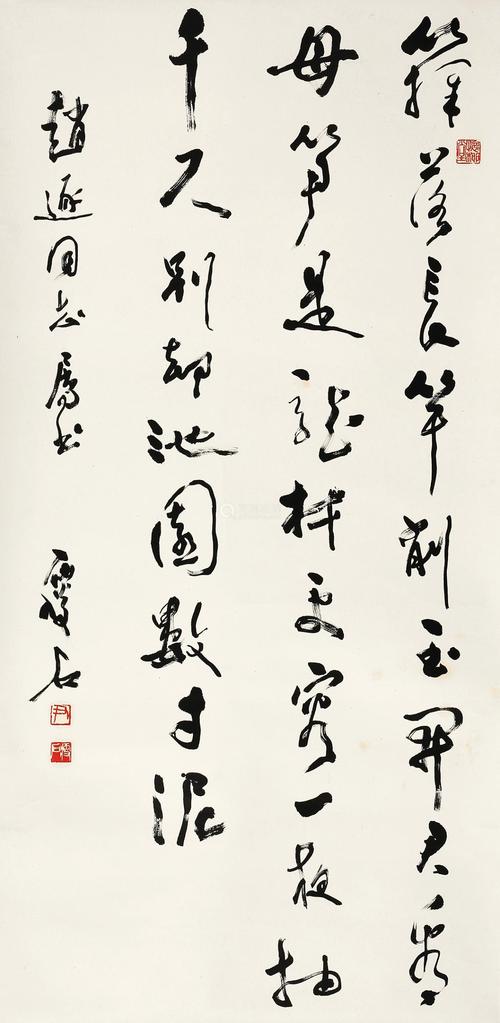 籜落長竿削玉開君看
母筍是龍材更容一夜抽
千尺別却池園數寸泥
趙同志屬書
瘦石
尹
瘦石